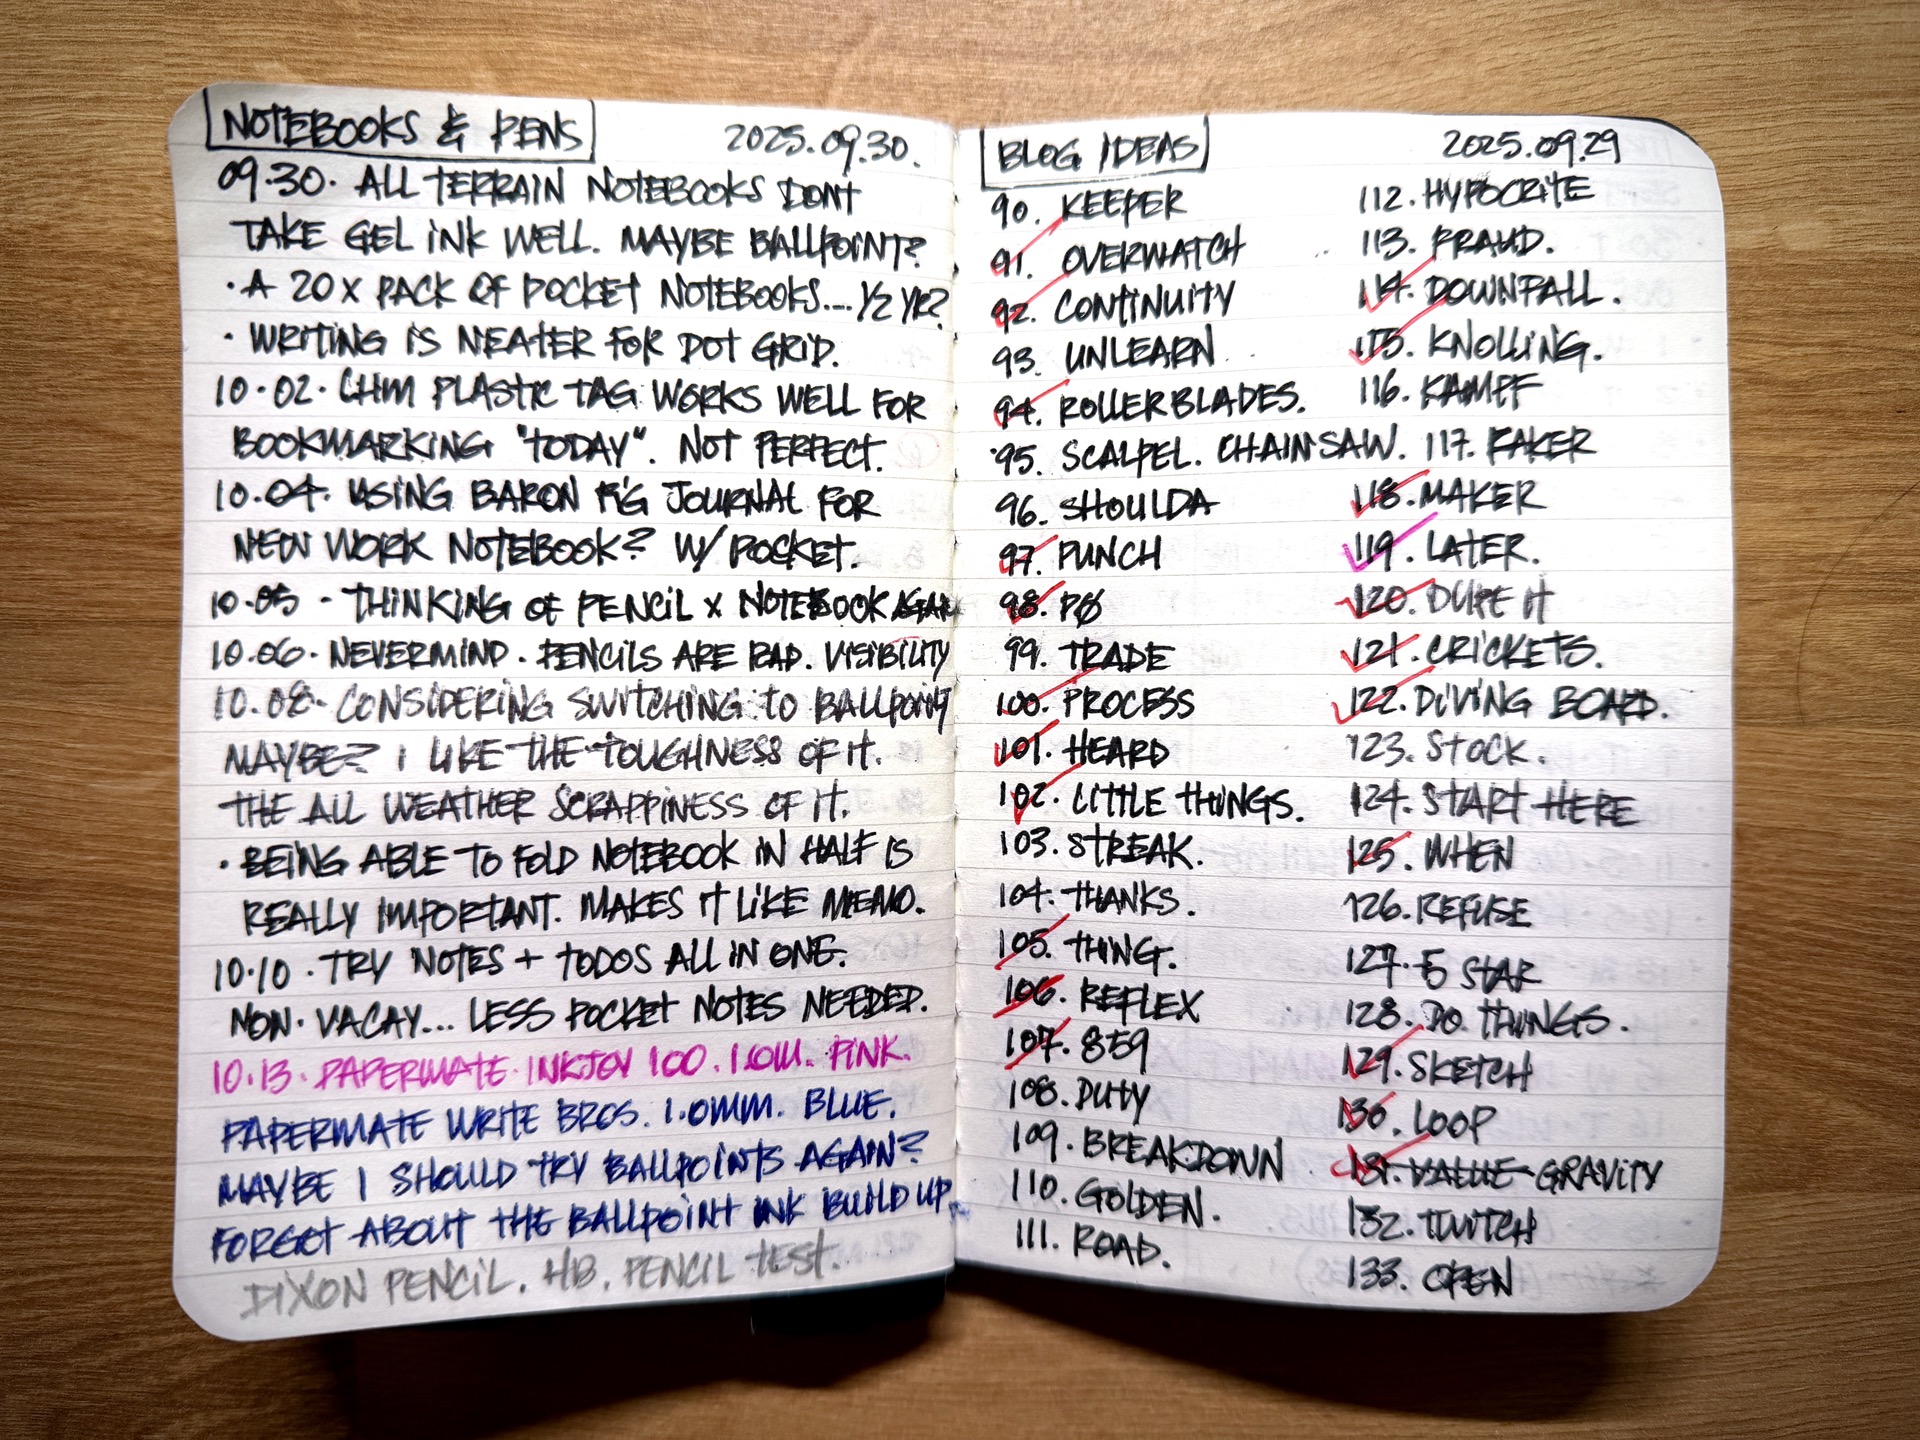 NOTEBOOKS & PENS 2025.09.30.
09.30. ALL TERRAIN NOTEBOOKS DONT
TAKE GEL INK WELL. MAYBE BALLPOINT?
· A 20X PACK OF POCKET NOTEBOOKS... 1/2 YR?
· WRITING IS NEATER FOR DOT GRID.
10.02. CHM PLASTIC TAG WORKS WELL FOR
BOOKMARKING "TODAY". NOT PERFECT.
10.04. USING BARON FIG JOURNAL FOR
NEW WORK NOTEBOOK? W/ POCKET.
10.05 - THINKING OF PENCIL X NOTEBOOK AGAIN
10.06. NEVERMIND. PENCILS ARE BAD. VISIBILITY
10.08. CONSIDERING SWITCHING TO BALLPOINT
MAYBE? I LIKE THE TOUGHNESS OF IT.
THE ALL WEATHER SCRAPPINESS OF IT.
· BEING ABLE TO FOLD NOTEBOOK IN HALF IS
REALLY IMPORTANT. MAKES IT LIKE MEMO.
10.10. TRY NOTES + TODOS ALL IN ONE.
NON. VACAY... LESS POCKET NOTES NEEDED.
10.13. PAPERMATE INKJOY 100. 1.0M. PINK.
PAPERMATE WRITE BROS. 1.0MM. BLUE.
MAYBE I SHOULD TRY BALLPOINTS AGAIN?
FORGOT ABOUT THE BALLPOINT INK BUILD UP.
DIXON PENCIL. HB. PENCIL TEST.
BLOG IDEAS 2025.09.29
90. KEEPER
91. OVERWATCH
92. CONTINUITY
93. UNLEARN
94. ROLLERBLADES.
95. SCALPEL. CHAINSAW.
96. SHOULDA
97. PUNCH
98. PØ
99. TRADE
100. PROCESS
101. HEARD
102. LITTLE THINGS.
103. STREAK.
104. THANKS.
105. THING.
106. REFLEX
107. 859
108. DUTY
109. BREAKDOWN
110. GOLDEN.
111. ROAD.
112. HYPOCRITE
113. FRAUD.
114. DOWNFALL.
115. KNOLLING.
116. KAMPF
117. FAKER
118. MAKER
119. LATER.
120. DUPE IT
121. CRICKETS.
122. DIVING BOARD.
123. STOCK.
124. START HERE
125. WHEN
126. REFUSE
127. 5 STAR
128. DO THINGS.
129. SKETCH
130. LOOP
131. VALUE GRAVITY
132. TWITCH
133. OPEN